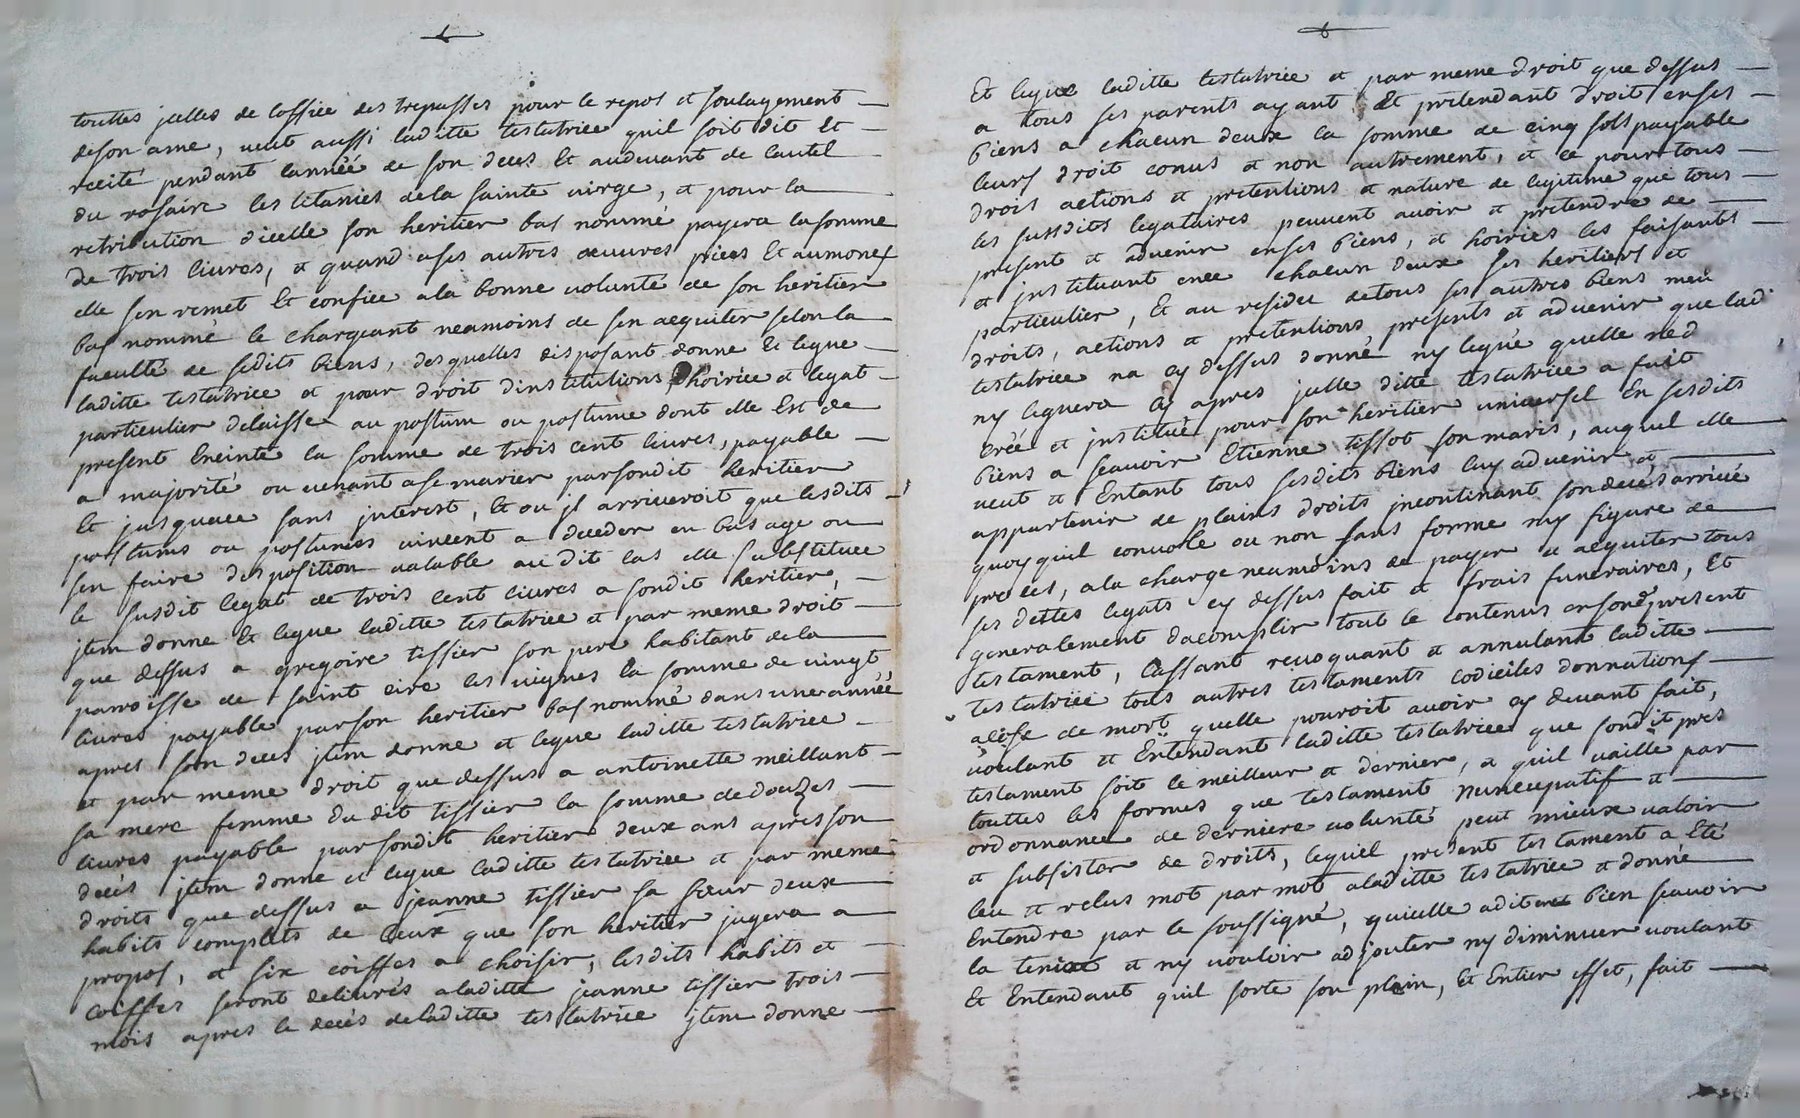 touttes jcelles de loffice des trepasses pour le repos et soulagement
de son ame, veut aussi laditte testatrice quil soit dit Et
recité pendant lannéé de son deces Et audevant de lautel
du rosaire les litanies de la sainte vierge, et pour la
retribution dicelle son heritier bas nommé payera la somme
de trois livres, et quand a ses autres œuvres pieés Et aumones
elle sen remet Et confiee a la bonne volunté de son heritier
bas nommé le chargeant neamoins de sen aequiter selon la
faculté de sesdits biens, desquelles disposant donne Et legue
laditte testatrice et pour droit dinstitutions, hoiriée et legat
particulier delaisse au postum ou postume dont elle Est de
present Eneinte la somme de trois cent livres, payable
a majorité ou venant a se marier par sondit heritier
Et jusquacee sans jnterest, Et ou jl arriveroit que lesdits
postums ou postumes vinsent a deceder en bas age ou
sen faire disposition valable audit cas elle substituee
le susdit legat de trois cent livres a sondit heritier,
jtem donne Et legue laditte testatrice et par meme droit
que dessus a gregoire tissier son pere habitant de la
parroisse de saint cire les vignes la somme de vingt
livres payable par son heritier bas nommé dans une année
apres son deces jtem donne et legue laditte testatrice
et par meme droit que dessus a antoinette meillant
sa mere femme du dit tissier la somme de douzes
livres payable par sondit heritier deux ans apres son
decés jtem donne et legue laditte testatrice et par meme
droits que dessus a jeanne tissier sa sœur deux
habits complets de ceux que son heritier jugera a
propos, et six coiffes a choisir, lesdits habits et
coiffes seront delivrés a laditte jeanne tissier trois
mois apres le decés de laditte testatrice jtem donne
Et legue laditte testatrice et par meme droit que dessus
a tous ses parents ayant Et pretendant droit en ses
biens a chacun deux la somme de cinq sols payable
leurs droit conus et non autrement, et ce pour tous
drois actions et pretentions et nature de legitime que tous
les susdits legataires peuvent avoir et pretendre de
present et advenir en ses biens, et hoiries les faisants
et jnstituant chacun deux ses heritiers et
particulier, Et au residu de tous ses autres biens meu
droits, actions et pretentions presents et advenir que lad
testatrice na cy dessus donné ny legué quelle ne d
ny leguera cy apres jcelle ditte testatrice a fait
créé et jnstitué pour son heritier universel En sesdits
biens a scavoir Etienne tissot son maris, auquel elle
veut et Entant tous sesdits biens luy advenir et
appartenir de plains droits jncontinant son deces arrivée
quoy quil convole ou non sans forme ny figure de
procés, a la charge neamoins de payer et aequiter tous
ses dettes legats cy dessus fait et frais funeraires, Et
generalement dacomplir tout le contenus en son present
testament, Cassant revoquant et annulant laditte
testatrice tous autres testaments codiciles donnations
de mort quelle pouroit avoir cy devant fait,
voulant et Entendant laditte testatrice que sondit prés
testament soit le meilleur et dernier, et quil vaille par
touttes les formes que testament nuncupatif et
ordonnance de derniere volunté peut mieux valoir
et subsister de droits, lequel present testament a Eté
leu et relus mot par mot a laditte testatrice et donné
Entendre par le soussigné, quielle a dit bien scavoir
la et ny vouloir adjouter ny diminuer voulant
Et Entendant quil sorte son plein, Et Entier effet, fait